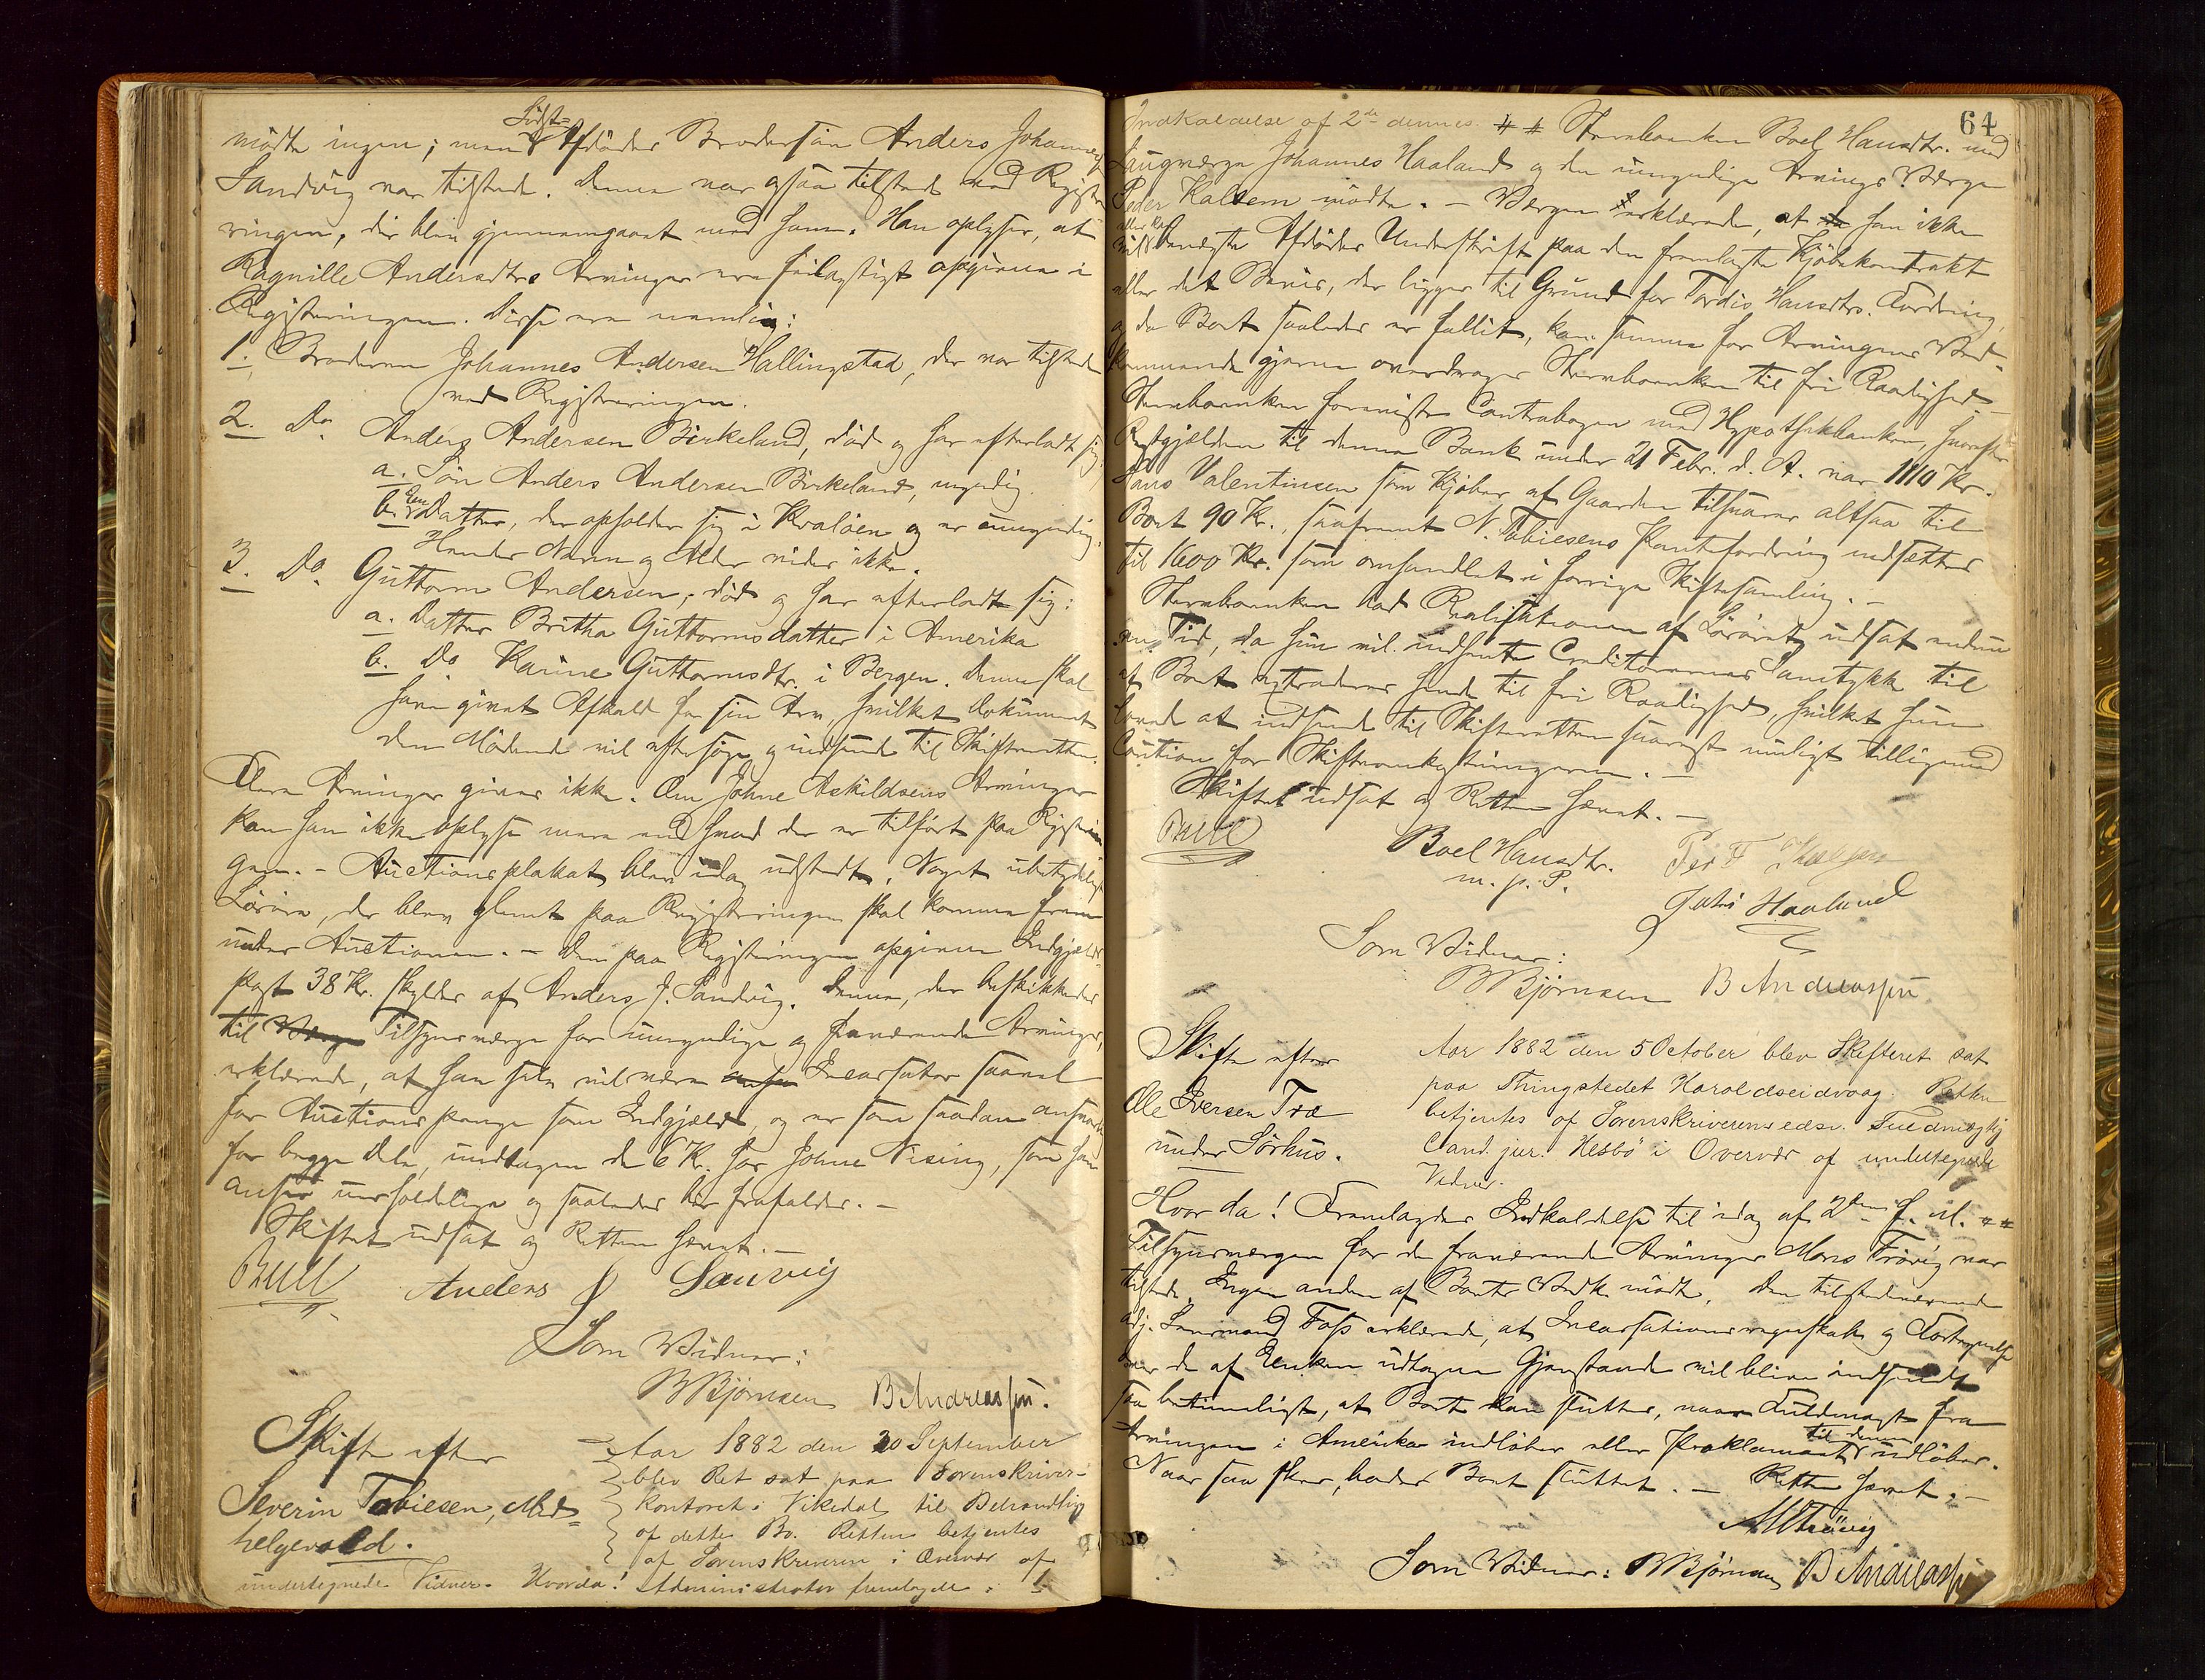 mødte ingen; men Sidst-
Afdødes Brodersøn Anders Johannes
Sandvig var tilstede. Denne var ogsaa tilstede ved Registe-
ringen, der blev gjennemgaaet med ham. Han oplyser, at
Ragnille Andersdtrs Arvinger ere feilagtigt opgivne i
Registeringen. Disse ere nemlig:
1. Broderen Johannes Andersen Hallingstad, der var tilstede
ved Registreringen.
2. Do Anders Andersen Birkeland, død og har efterladt sig:
a. Søn Anders Andersen Birkeland, myndig.
b. Een Datter, der opholder sig i Kvaløen og er umyndig.
Hendes Navn og Alder vides ikke.
3. Do Guttorm Andersen, død og har efterladt sig:
a. Datter Britha Guttormsdatter i Amerika
b. Do Karine Guttormsdtr. i Bergen. Denne skal
have givet Afkald for sin Arv, hvilket Dokument
den Mødende vil eftersøge og indsende til Skifteretten.
Flere Arvinger gives ikke. Om Johne Askildsens Arvinger
kan han ikke oplyse mere end hvad der er tilført paa Registerin-
gen. - Auctionsplakat blev idag udstedt. Noget ubetydeligt
Løsøre, der blev glemt paa Registeringen skal komme frem
under Auctionen. - Den paa Registeringen opgivne Indgjælds-
post 38 Kr. skyldes af Anders J. Sandvig. Denne, der beskikkedes
til Værge Tilsynsværge for umyndige og fraværende Arvinger,
erklærede, at han selv vil være Incassator saavel
for Auctionspenge som Indgjæld, og er som saadan ansvarlig
for begge Dele, undtagen de 6 Kr. hos Johne Nising, som han
anser uerholdelige og saaledes bør frafaldes. -
Skiftet udsat og Retten hævet. -
Bull Anders J Sanvig
Som Vidner:
B Bjørnsen B Andreassen.
Skifte efter
Severin Tobiesen, Med-
helgevold.
Aar 1882 den 30 September
blev Ret sat paa Sorenskriver-
kontoret i Vikedal til Behandling
af dette Bo. Retten betjentes
af Sorenskriveren i Overvær af
undertegnede Vidner. Hvorda! Administrator fremlagde: 1
64
Indkaldelse af 2de dennes. # # Sterboenken Boel Hansdtr. med
Laugværge Johannes Haaland og den umyndige Arvings Værge
Peder Kalsem mødte. - Værgen erklærede, at han ikke
vil benægte Afdødes Underskrift paa den fremlagte Kjøbekontrakt
eller det Bevis, der ligger til Grund for Tordis Hansdtrs. Fordring,
og da Boet saaledes er fallit, kan samme for Arvingens Ved-
kommende gjerne overdrages Sterboenken til fri Raadighed. -
Sterboenken foreviste Contrabogen med Hypothekbanken, hvorefter
Restgjælden til denne Bank under 21 Febr. d. A. var 1110 Kr.
Hans Valentinsen som Kjøber af Gaarden tilsvarer altsaa til
Boet 90 Kr., saafremt N. Tobiesens Pantefordring nedsættes
til 1600 Kr. som omhandlet i forrige Skiftesamling. -
Sterboenken bad Realisationen af Løsøret udsat endnu
en Tid, da hun vil indhente Creditorernes Samtykke til
at Boet extraderes hende til fri Raadighed, hvilket hun
lovede at indsende til Skifteretten snarest muligt tilligemed
Caution for Skifteomkostningerne. -
Skiftet udsat og Retten hævet. -
Bull
Boel Hansdtr.
m. p. P.
Haaland
Som Vidner:
B Bjørnsen B Andreassen
Skifte efter
Ole Iversen Træ
under Sørhus.
Aar 1882 den 5 October blev Skifteret sat
paa Thingstedet Haroldseidvaag. Retten
betjentes af Sorenskriverens edsv. Fuldmægtig
Cand. jur. Hesbø i Overvær af undertegnede
Vidner.
Hvor da! Fremlagdes Indkaldelse til idag af 2den f. M. # #
Tilsynsværgen for de fraværende Arvinger Mons Trøvig var
tilstede. Ingen anden af Boets Vedk. mødte. Den tilstedeværende
adj. Lensmand Foss erklærede, at Incassationsregnskab og Fortegnelse
over de af Enken udtagne Gjenstande vil blive indsendt
saa betimeligt, at Boet kan sluttes, naar Fuldmagt fra
Arvingen i Amerika indløber eller Proklamaet til denne udløber.
Naar saa skeer, bedes Boet sluttet. - Retten hævet. -
M Trøvig
Som Vidner: B Bjørnsen B Andreassen